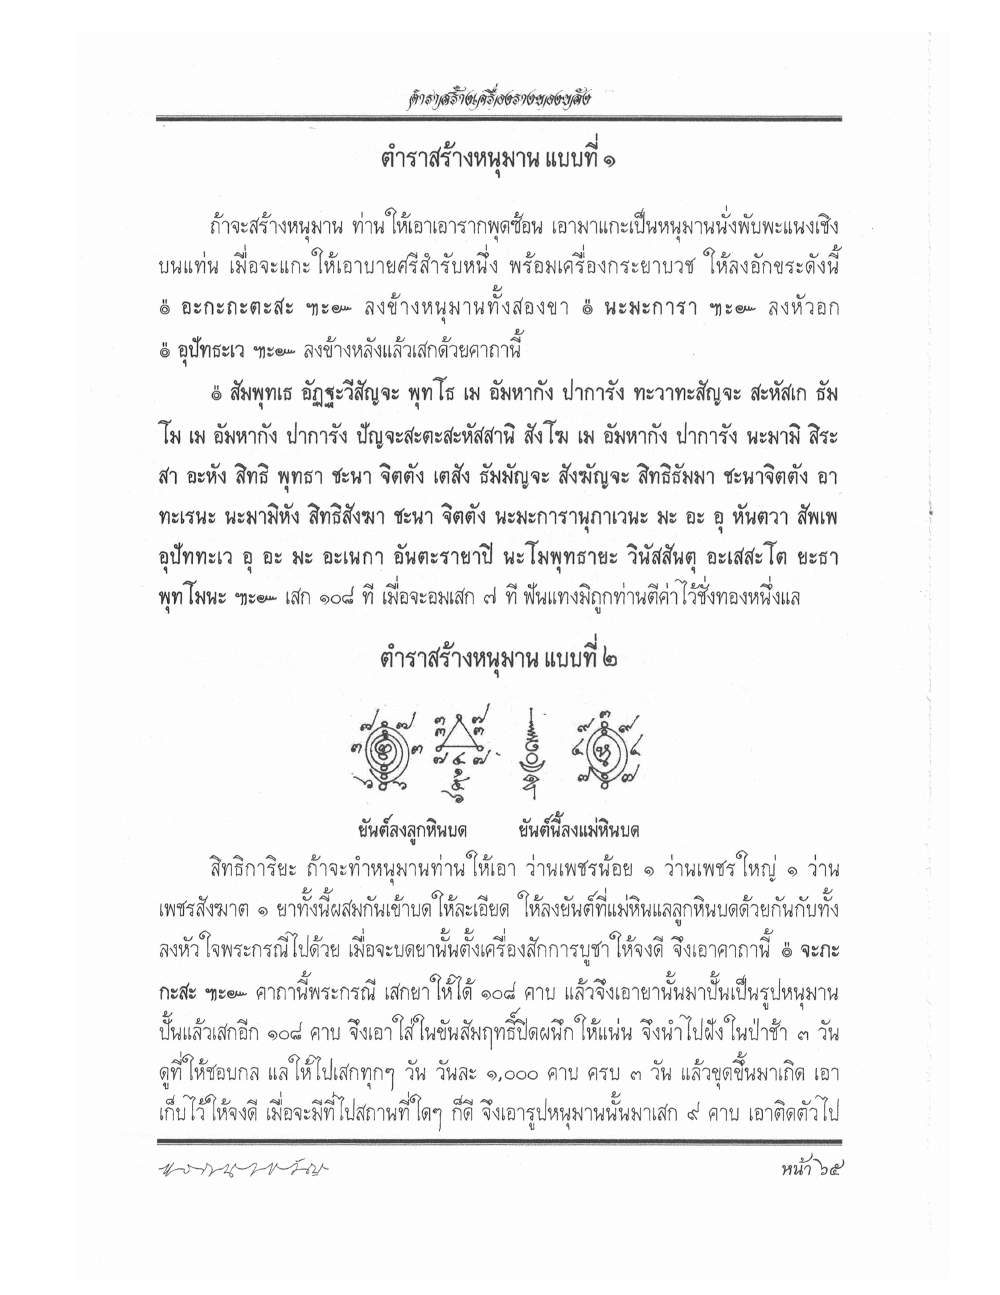 ตำราสร้างเครื่องรางของขลัง
ตำราสร้างหนุมาน แบบที่ ๑
ถ้าจะสร้างหนุมาน ท่านให้เอาเอารากพุดซ้อน เอามาแกะเป็นหนุมานนั่งพับพะแนงเชิง
บนแท่น เมื่อจะแกะให้เอาบายศรีสำรับหนึ่ง พร้อมเครื่องกระยาบวช ให้ลงอักขระดังนี้
๏ อะกะถะตะสะ ฯะ๛ ลงข้างหนุมานทั้งสองขา ๏ นะมะการา ฯะ๛ ลงหัวอก
๏ อุปัทธะเว ฯะ๛ ลงข้างหลังแล้วเสกด้วยคาถานี้
๏ สัมพุทเธ อัฏฐะวีสัญจะ พุทโธ เม อัมหากัง ปาการัง ทะวาทะสัญจะ สะหัสเก ธัม
โม เม อัมหากัง ปาการัง ปัญจะสะตะสะหัสสานิ สังโฆ เม อัมหากัง ปาการัง นะมามิ สิระ
สา อะหัง สิทธิ พุทธา ชะนา จิตตัง เตสัง ธัมมัญจะ สังฆัญจะ สิทธิธัมมา ชะนาจิตตัง อา
ทะเรนะ นะมามิหัง สิทธิสังฆา ชะนา จิตตัง นะมะการานุภาเวนะ มะ อะ อุ หันตวา สัพเพ
อุปัททะเว อุ อะ มะ อะเนกา อันตะรายาปิ นะโมพุทธายะ วินัสสันตุ อะเสสะโต ยะธา
พุทโมนะ ฯะ๛ เสก ๑๐๘ ที เมื่อจะอมเสก ๗ ที ฟันแทงมิถูกท่านตีค่าไว้ชั่งทองหนึ่งแล
ตำราสร้างหนุมาน แบบที่ ๒
ยันต์ลงลูกหินบด ยันต์นี้ลงแม่หินบด
สิทธิการิยะ ถ้าจะทำหนุมานท่านให้เอา ว่านเพชรน้อย ๑ ว่านเพชรใหญ่ ๑ ว่าน
เพชรสังฆาต ๑ ยาทั้งนี้ผสมกันเข้าบดให้ละเอียด ให้ลงยันต์ที่แม่หินแลลูกหินบดด้วยกันกับทั้ง
ลงหัวใจพระกรณีไปด้วย เมื่อจะบดยานั้นตั้งเครื่องสักการบูชาให้จงดี จึงเอาคาถานี้ ๏ จะภะ
กะสะ ฯะ๛ คาถานี้พระกรณี เสกยาให้ได้ ๑๐๘ คาบ แล้วจึงเอายานั้นมาปั้นเป็นรูปหนุมาน
ปั้นแล้วเสกอีก ๑๐๘ คาบ จึงเอาใส่ในขันสัมฤทธิ์ปิดผนึกให้แน่น จึงนำไปฝังในป่าช้า ๓ วัน
ดูที่ให้ชอบกล แลให้ไปเสกทุกๆ วัน วันละ ๑,๐๐๐ คาบ ครบ ๓ วัน แล้วขุดขึ้นมาเถิด เอา
เก็บไว้ให้จงดี เมื่อจะมีที่ไปสถานที่ใดๆ ก็ดี จึงเอารูปหนุมานนั้นมาเสก ๙ คาบ เอาติดตัวไป
หน้า ๖๕